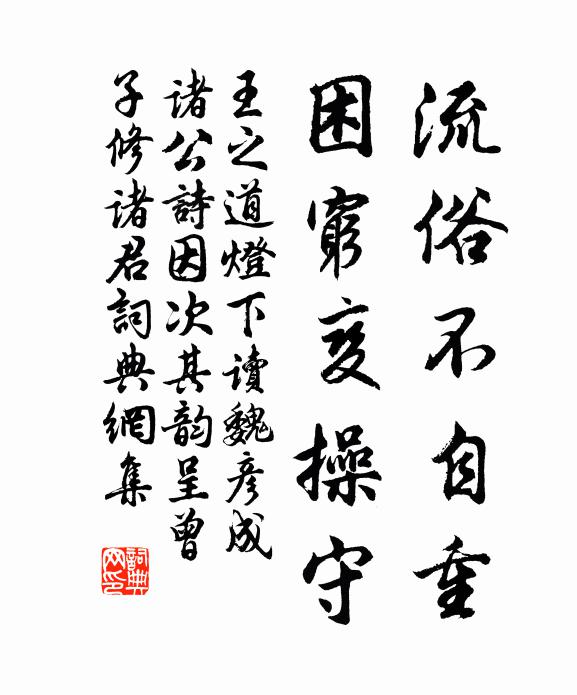 流俗不自重
困穷变操守
王之道燈下讀魏彦成
諸公詩因次其韵呈曾
子修诸君詞典網集
詞典网印